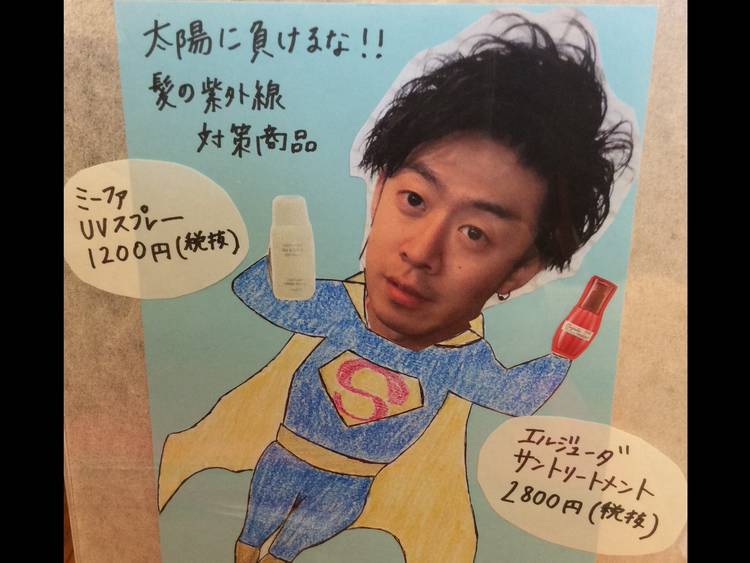 太陽に負けるな!!
髪の紫外線
対策商品
ミーファ
UVスプレー
1200円(税抜)
S
エルジューダ
サントリートメント
2800円(税抜)